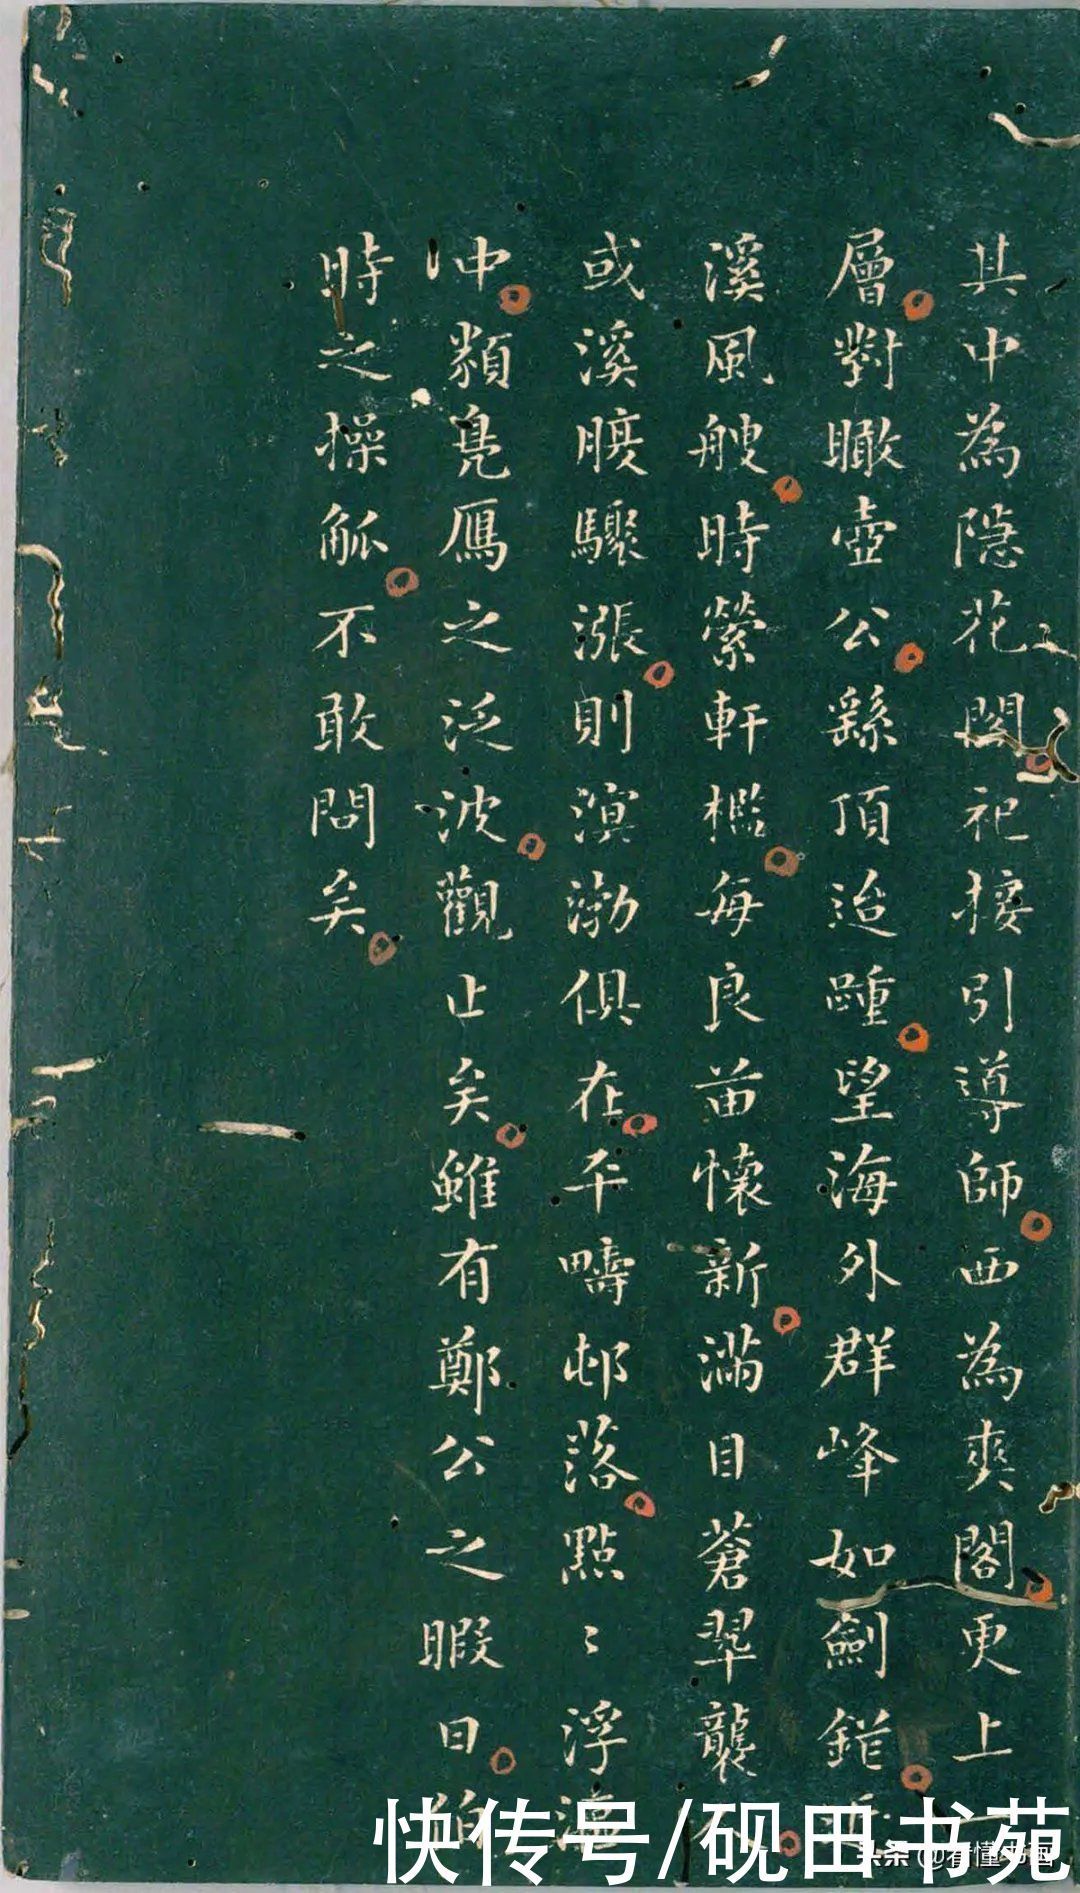 其中為隱花閣祀接引導師西為爽閣更上
層對瞰壺公繇頂迨踵望海外群峰如劍鋩
溪風艘時縈軒檻每良苗懷新滿目蒼翠襲
或溪驟漲則溟渤俱在平疇邨落點〻浮
冲類鳧鴈之泛波觀止矣雖有鄭公之暇日
時之操觚不敢問矣
快传号/砚田书苑
头条 @看懂书画